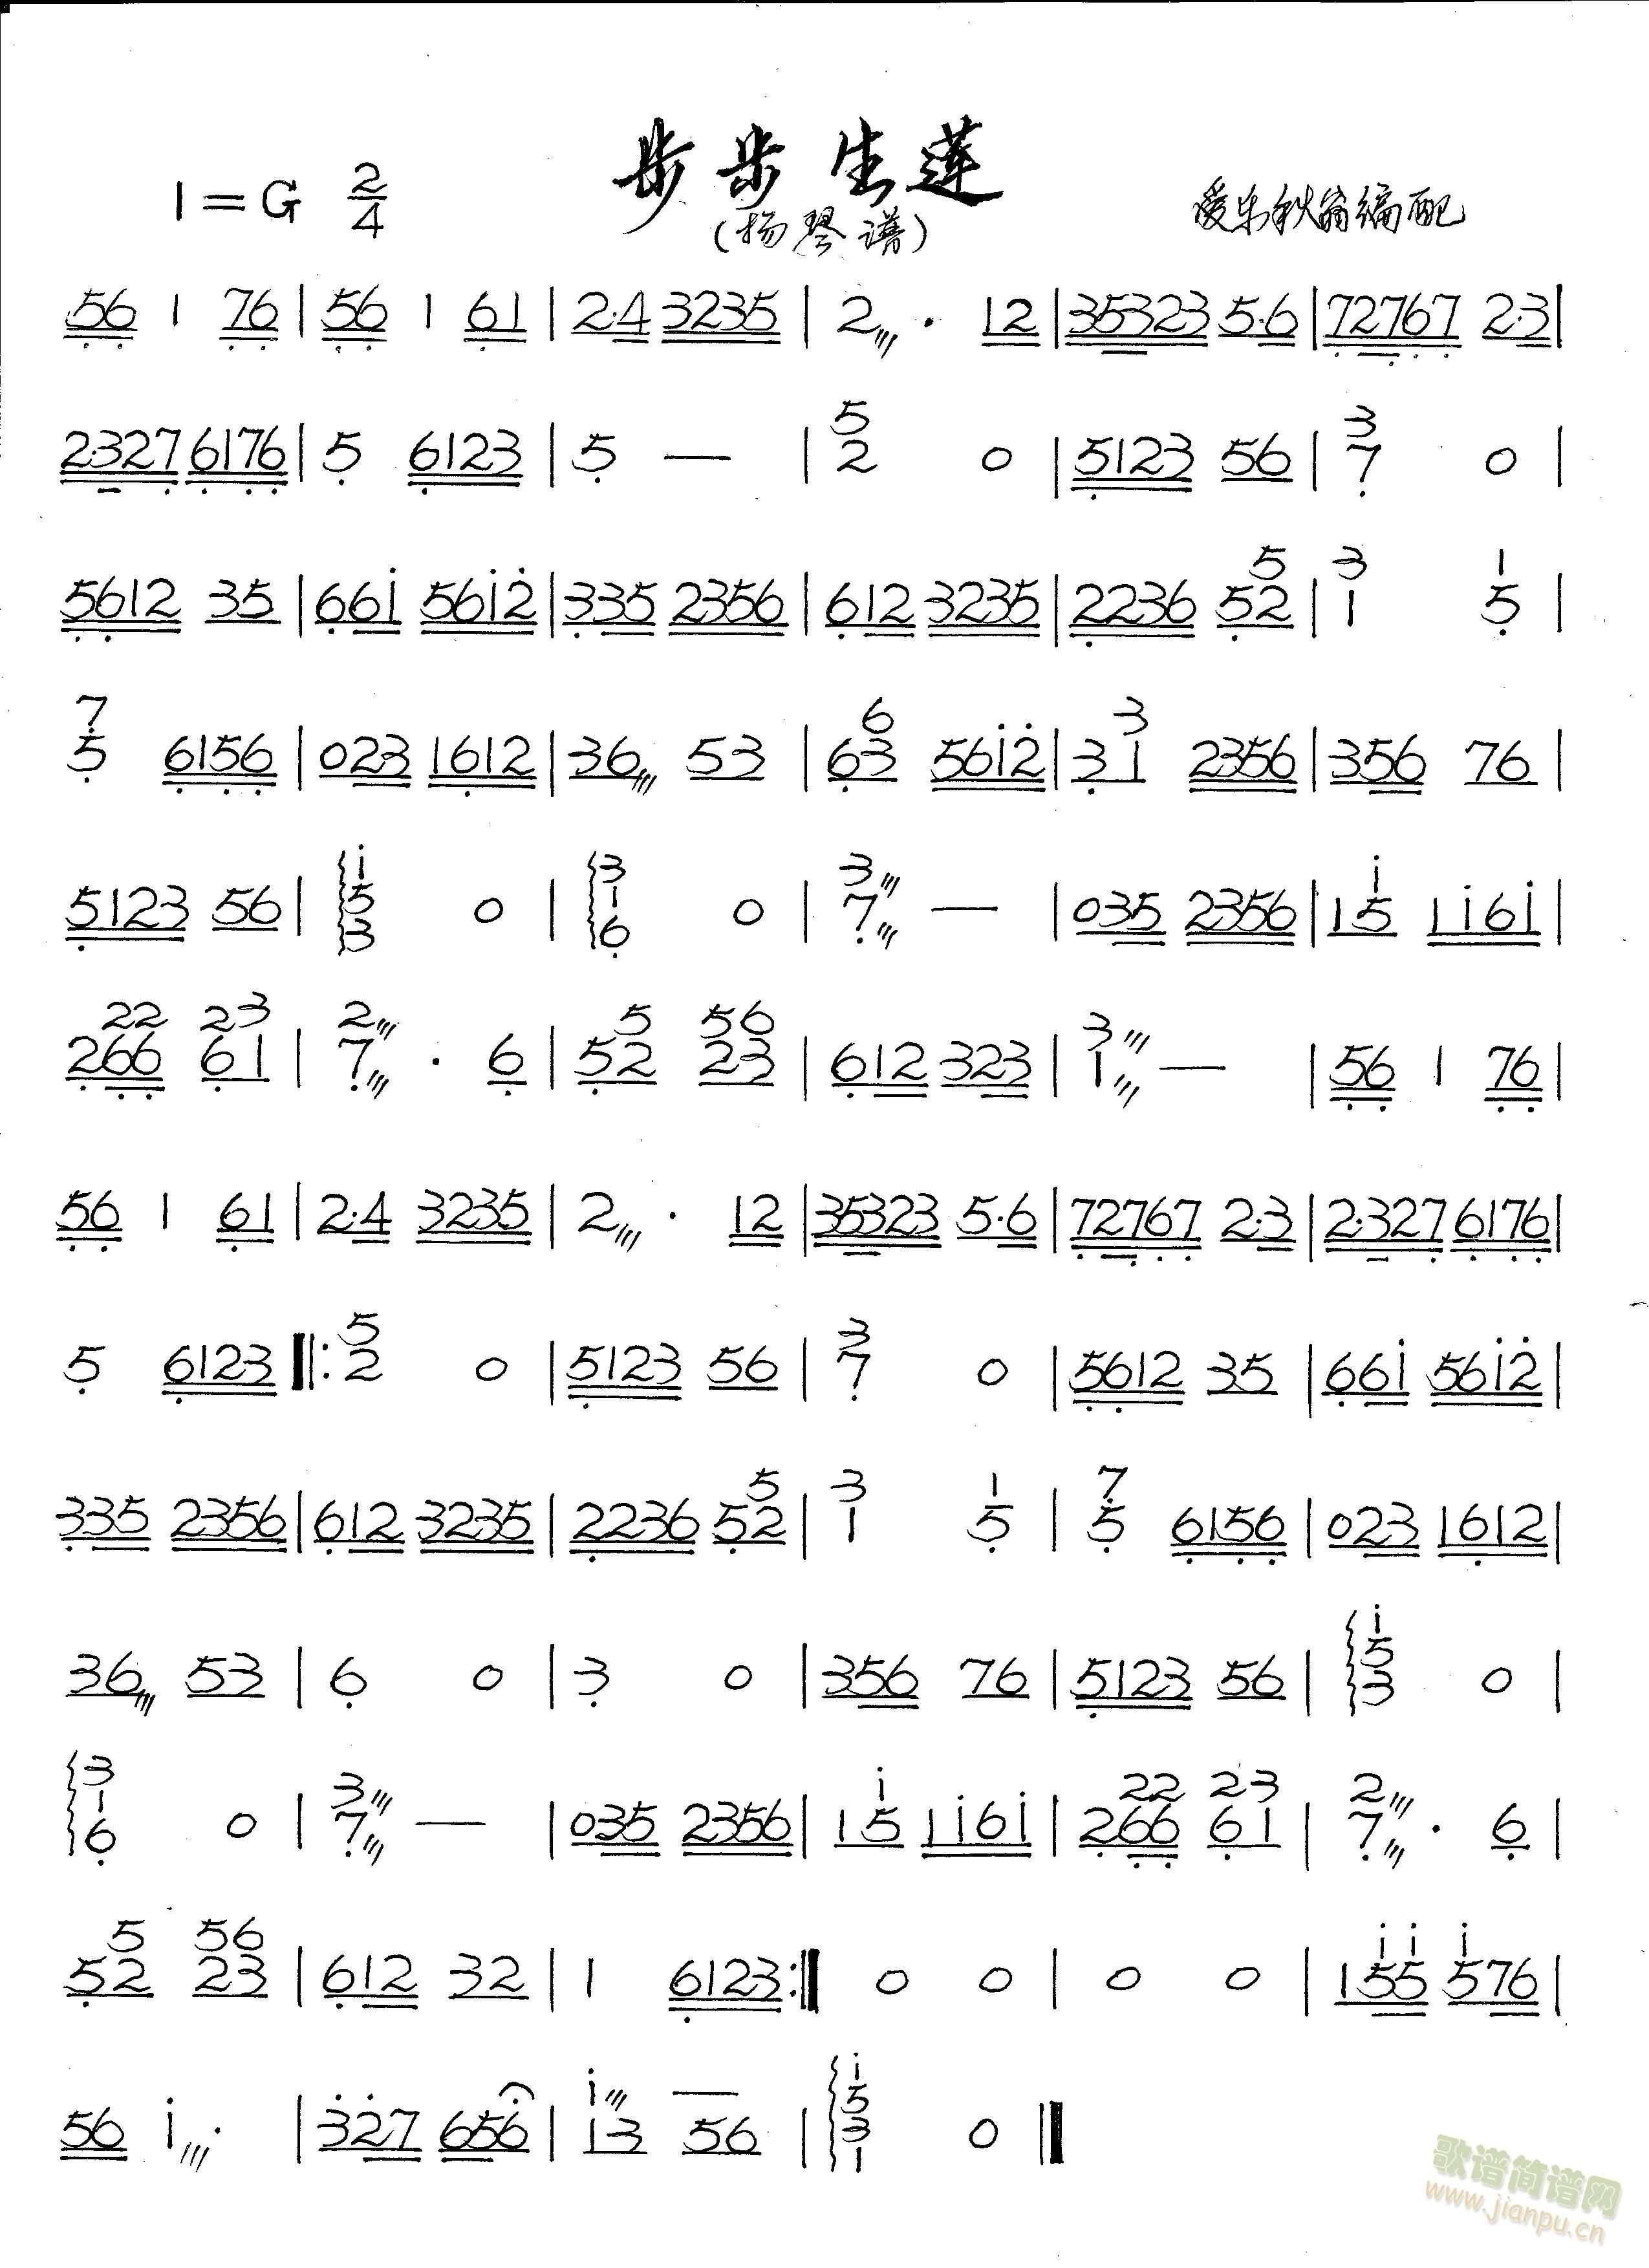 步步生莲
1=G 2/4
(扬琴谱)
爱乐秋翁编配
56 1 76 | 56 1 61 | 2·4 3235 | 2 · 12 | 35323 5·6 | 72767 2·3 |
2·327 6176 | 5 6123 | 5 — | 5 2 0 | 5123 56 | 3 7 0 |
5612 35 | 661 5612 | 335 2356 | 612 3235 | 2236 5 5 2 | 3 1 1 5 |
7 5 6156 | 023 1612 | 36 53 | 6 6 3 5612 | 3 3 1 2356 | 356 76 |
5123 56 | 1 5 3 0 | 3 1 6 0 | 3 7 — | 035 2356 | 1 1 5 1161 |
22 23
266 61 | 2 7 · 6 | 5 5 2 56 23 | 612 323 | 3 1 — | 56 1 76 |
56 1 61 | 2·4 3235 | 2 · 12 | 35323 5·6 | 72767 2·3 | 2·327 6176 |
5 6123 ‖: 5 2 0 | 5123 56 | 3 7 0 | 5612 35 | 661 5612 |
335 2356 | 612 3235 | 2236 5 5 2 | 3 1 1 5 | 7 5 6156 | 023 1612 |
36 53 | 6 0 | 3 0 | 356 76 | 5123 56 | 1 5 3 0 |
3 1 6 0 | 3 7 — | 035 2356 | 1 1 5 1161 | 22 266 23 61 | 2 7 · 6 |
5 5 2 56 23 | 612 32 | 1 6123 :‖ 0 0 | 0 0 | 1 11 55 1 576 |
56 1 · | 327 656 | 1 — 13 56 | 1 5 3 1 0 ‖
歌谱简谱网
www.jianpu.cn